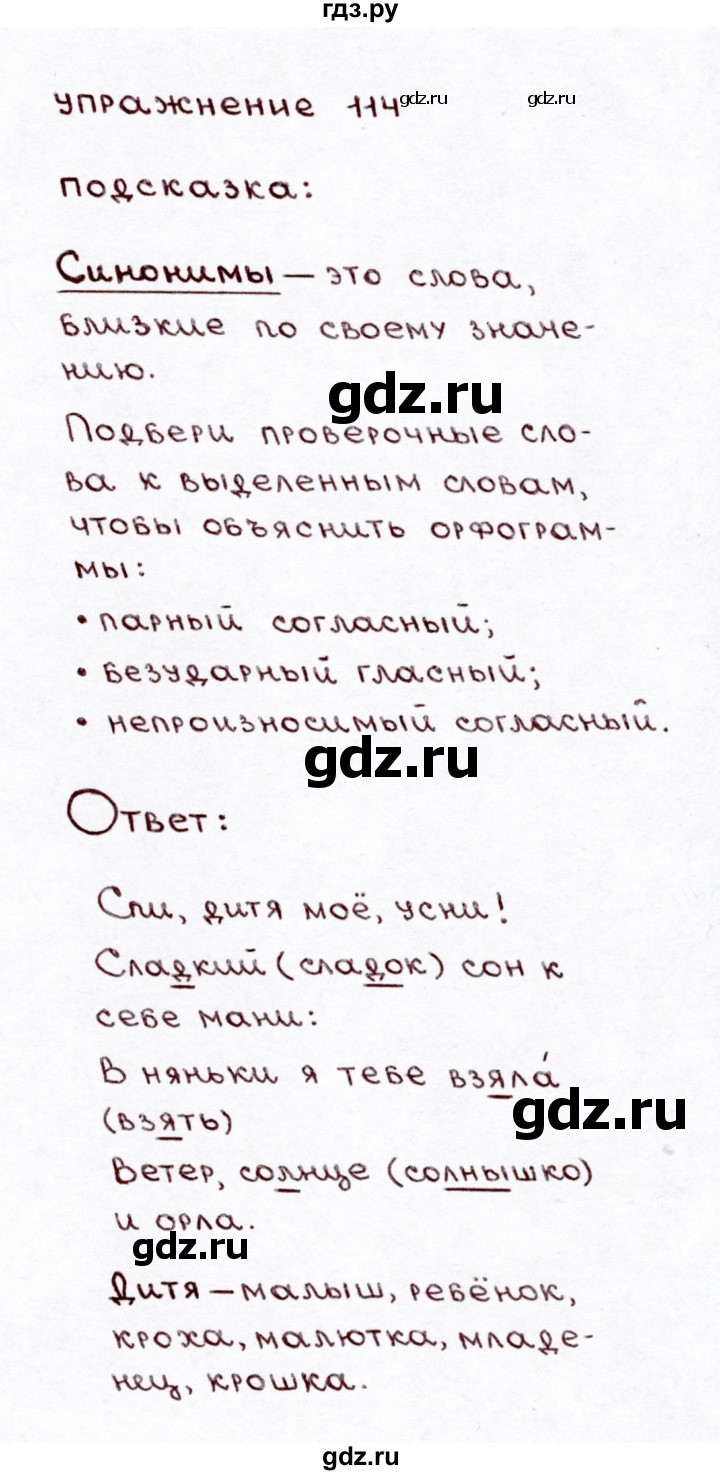 гдз.ру
упражнение 114
gdz.ru gdz.ru
подсказка:
Синонимы — это слова,
близкие по своему значе-
нию.
gdz.ru
Подбери проверочные сло-
ва к выделенным словам,
чтобы объяснить орфограм-
мы:
• парный согласный;
• безударный гласный;
• непроизносимый согласный.
gdz.ru
Ответ:
Спи, дитя моё, усни!
Сладкий (сладок) сон к
себе мани:
В няньки я тебе взяла́
gdz.ru
(взять)
Ветер, солнце (солнышко)
и орла.
gdz.ru
Дитя — малыш, ребёнок,
кроха, малютка, младе-
нец, крошка.
gdz.ru